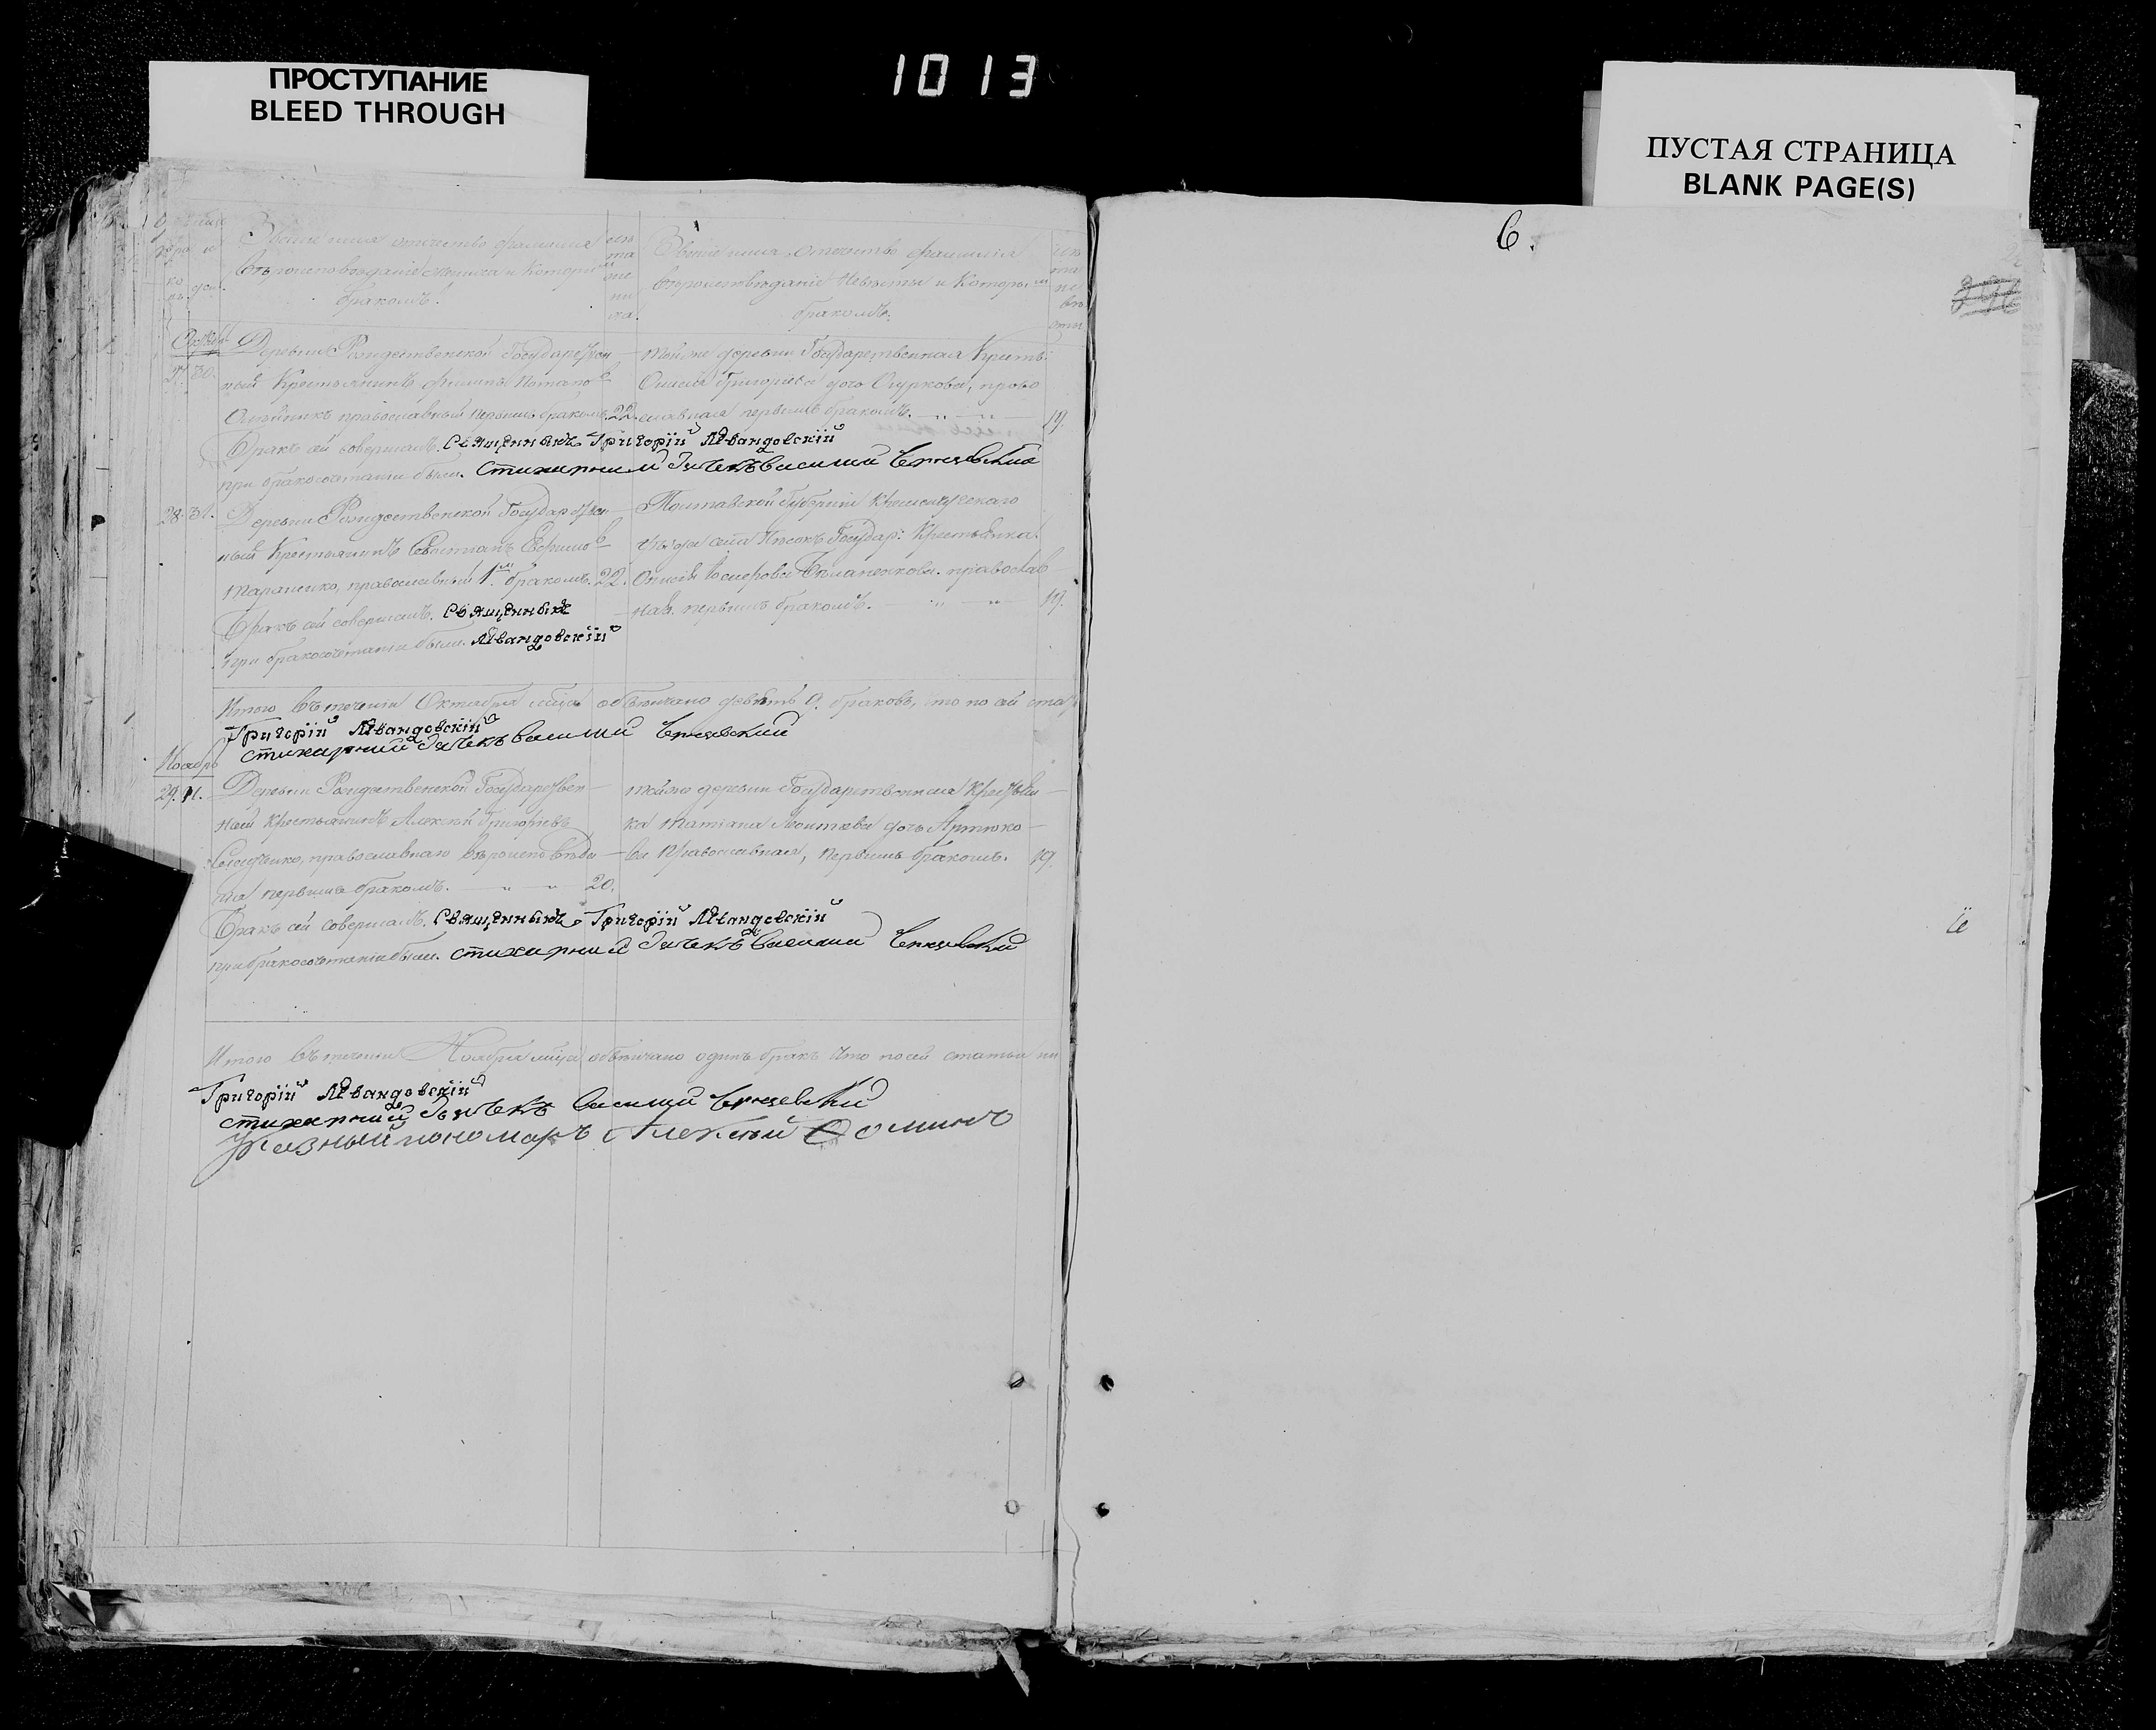 ПРОСТУПАНИЕ
BLEED THROUGH
1013
ПУСТАЯ СТРАНИЦА
BLANK PAGE(S)
6.
Званіе имя отечество фамилія
вѣроисповѣданіе жениха и которым
бракомъ.
Званіе имя, отечество фамилія
вѣроисповѣданіе невѣсты и которым
бракомъ.
27. 30. Деревни Рождественской Государствен-
ный Крестьянинъ Филипъ Потапов
православный первымъ бракомъ. 22.
тойже деревни Государственная Крестья:
Григорьева дочь Огуркова, право
славная первымъ бракомъ. 19.
Бракъ сей совершалъ. Священникъ Григорій Левандовскій
при бракосочетаніи были. стихарный дьячекъ Василий
28. 31. Деревни Рождественской Государствен-
ный Крестьянинъ Севастианъ Ефимов
Тараненко, православный 1м бракомъ. 22.
Полтавской Губерніи Кременчугскаго
уѣзда села Песокъ Государ: Крестьянка.
православ
ная. первымъ бракомъ. 19.
Бракъ сей совершалъ. Священникъ
при бракосочетаніи были. Левандовскій
Итого въ теченіи Октября мѣсяца обвѣнчано девять 9. браковъ, что по сей стат
Григорій Левандовскій
стихарный дьячекъ Василий
Ноябрь
29. 11. Деревни Рождественской Государствен-
ный Крестьянинъ Алексѣй Григорьевъ
православнаго вѣроисповѣда-
нія первымъ бракомъ. 20.
тойже деревни Государственная Крестьян-
ка Татіана Леонтьева дочь Артюхо-
ва Православная, первымъ бракомъ. 19.
Бракъ сей совершалъ. Священникъ Григорій Левандовскій
при бракосочетаніи были. стихарный дьячекъ Василий
Итого въ теченіи Ноября мѣсяца обвѣнчано одинъ бракъ что по сей статьи
Григорій Левандовскій
стихарный дьячекъ Василий
Указный пономарь Алексѣй Фоминъ